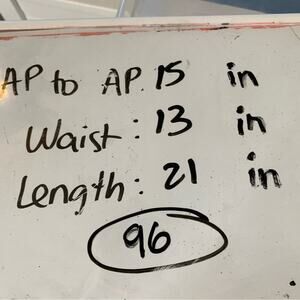 AP to AP. 15 in
Waist: 13 in
Length: 21 in
96